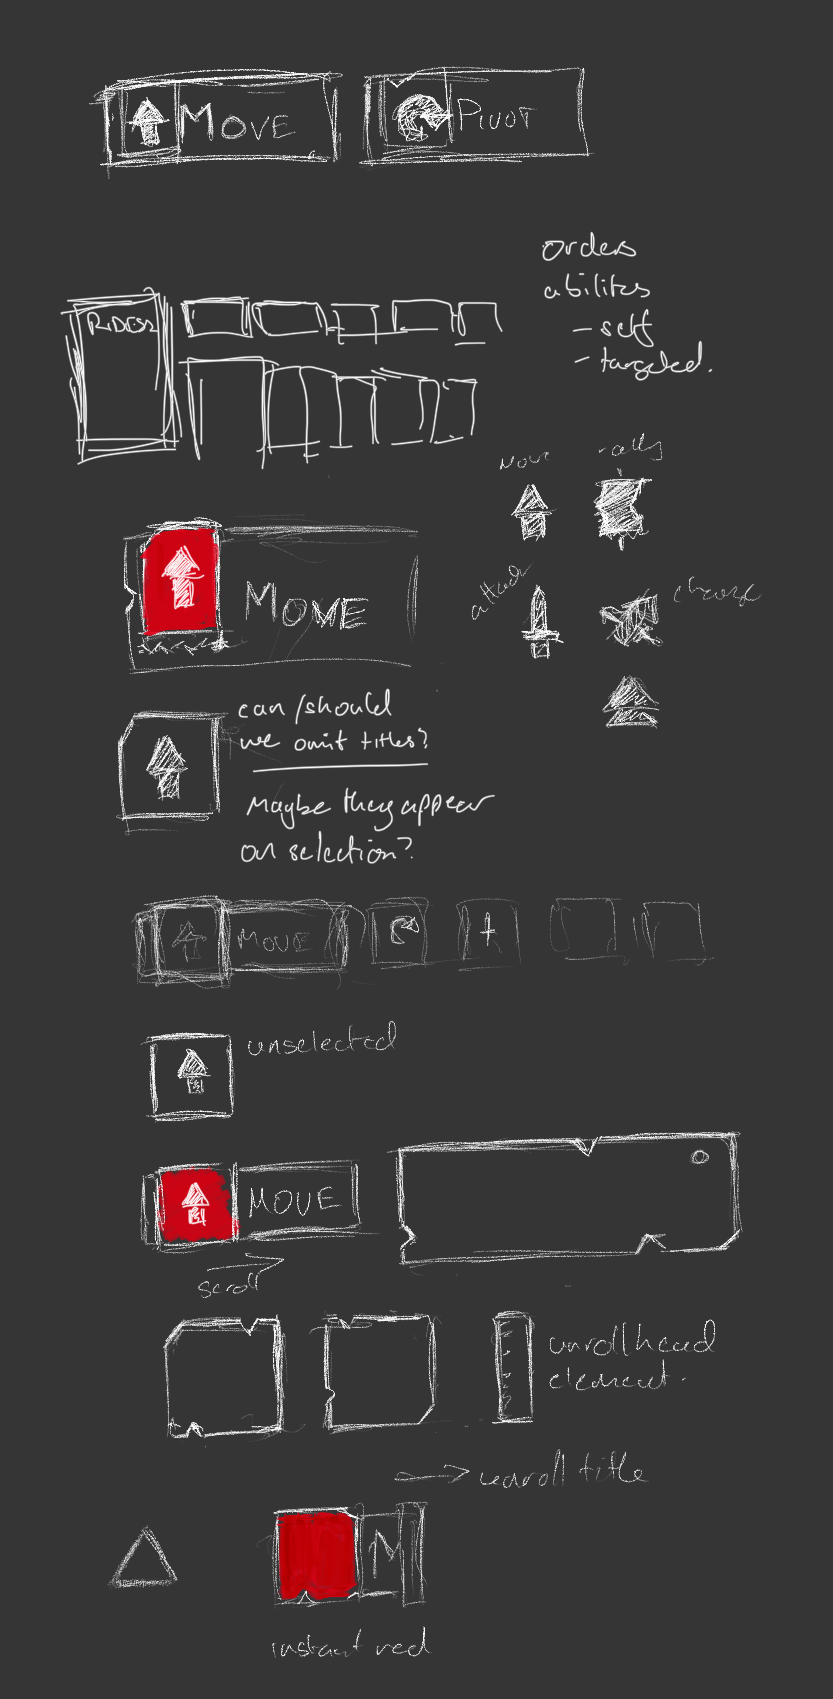 MOVE
PIVOT
orders
abilites
- self
- targeted.
RIDERS
Move
rally
attack
charge
MOVE
can/should
we omit titles?
Maybe they appear
on selection?
MOVE
unselected
MOVE
scroll
unrollhead
element.
unroll title
M
instant red